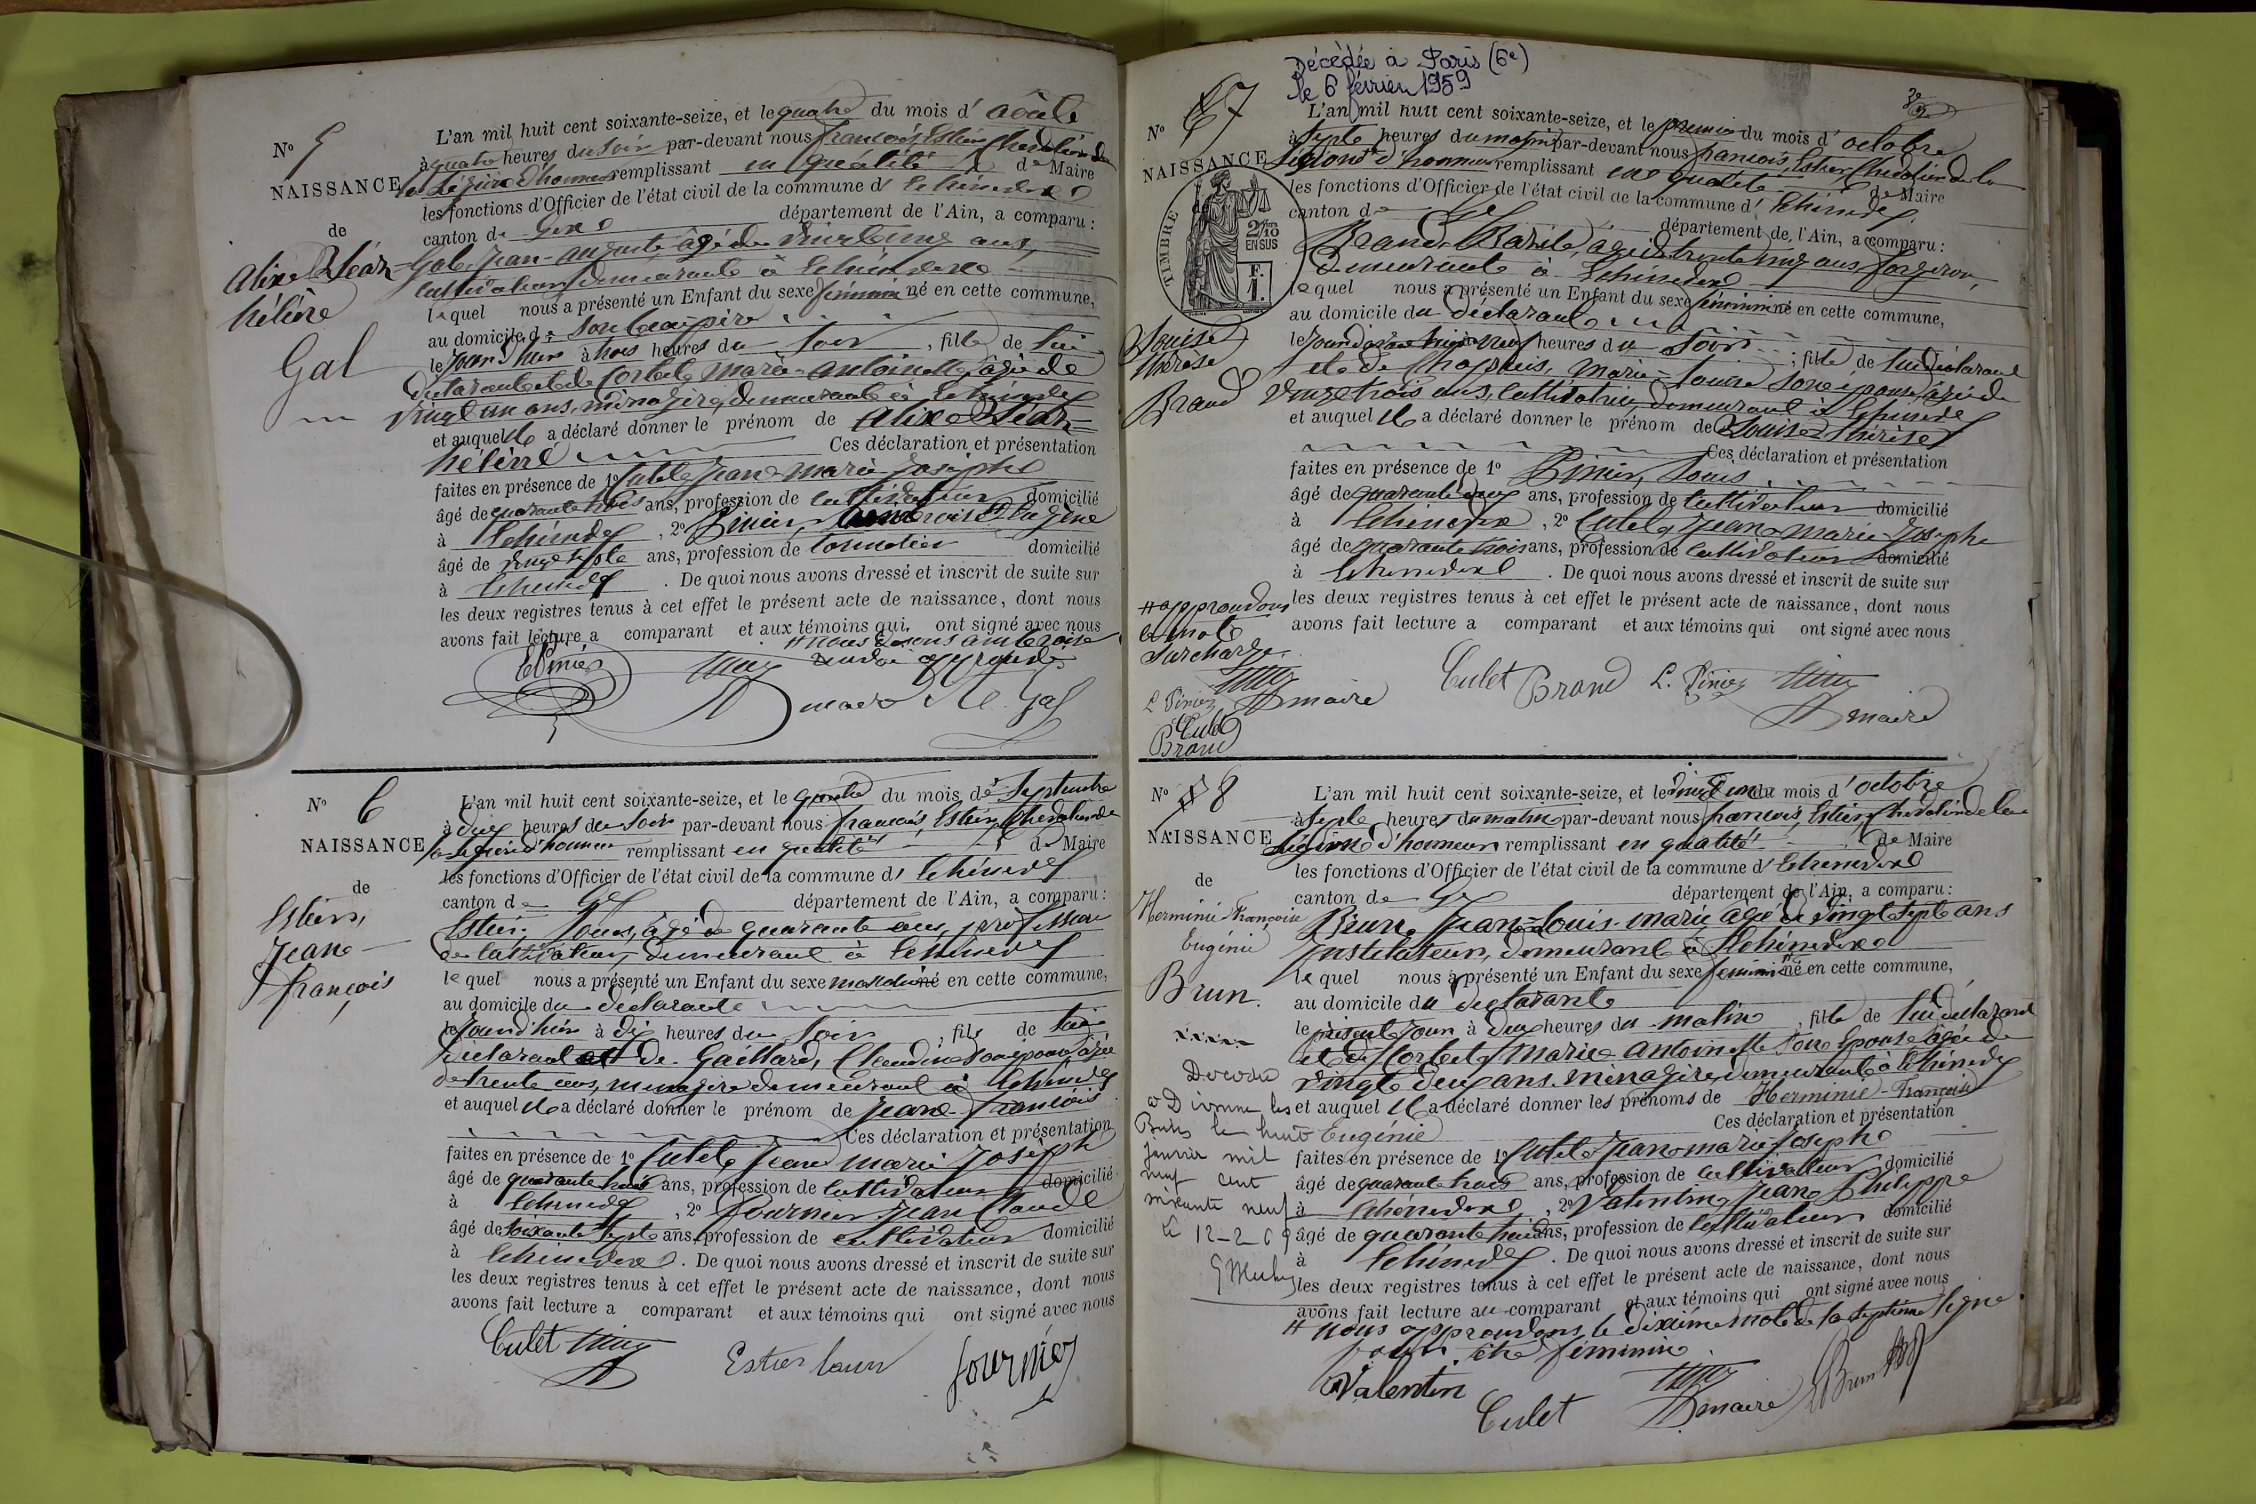 N° 5
NAISSANCE
de
Alix Hélène
Gal
L'an mil huit cent soixante-seize, et le quatre du mois d' août
à quatre heures du soir par-devant nous françois, Estier, Chevalier de
la Légion d'honneur remplissant en qualité de Maire
les fonctions d'Officier de l'état civil de la commune d' Echenevex
canton de Gex département de l'Ain, a comparu :
Gal Jean-auguste, âgé de vingt cinq ans,
cultivateur demeurant à Echenevex
lequel nous a présenté un Enfant du sexe féminin né en cette commune,
au domicile de son beau-père
le jour d'hier à trois heures du soir , fille de lui
déclarant et de Corbet marie-antoinette âgée de
vingt un ans, ménagère, demeurant à Echenevex
et auquel il a déclaré donner le prénom de Alix
hélène Ces déclaration et présentation
faites en présence de 1° Cutet Jean marie Joseph
âgé de quarante trois ans, profession de cultivateur domicilié
à Echenevex , 2° Pinier, Eugène
âgé de vingt sept ans, profession de domicilié
à Echenevex . De quoi nous avons dressé et inscrit de suite sur
les deux registres tenus à cet effet le présent acte de naissance, dont nous
avons fait lecture a comparant et aux témoins qui ont signé avec nous
EPinier maire Gal
N° 6
NAISSANCE
de
Estier,
Jean
françois
L'an mil huit cent soixante-seize, et le quatre du mois de Septembre
à heures du soir par-devant nous françois, Estier, Chevalier de
la Légion d'honneur remplissant en qualité de Maire
les fonctions d'Officier de l'état civil de la commune d' Echenevex
canton de Gex département de l'Ain, a comparu :
Estier, Louis, âgé de quarante ans, profession
de cultivateur, demeurant à Echenevex
lequel nous a présenté un Enfant du sexe masculin né en cette commune,
au domicile du déclarant
le jour d'hier à dix heures du soir , fils de lui
déclarant et de Gaillard, Claudine son épouse âgée
de trente ans, ménagère demeurant à Echenevex
et auquel il a déclaré donner le prénom de Jean-françois
Ces déclaration et présentation
faites en présence de 1° Cutet Jean marie Joseph
âgé de quarante trois ans, profession de cultivateur domicilié
à Echenevex , 2° fournier Jean Claude
âgé de soixante sept ans, profession de cultivateur domicilié
à Echenevex . De quoi nous avons dressé et inscrit de suite sur
les deux registres tenus à cet effet le présent acte de naissance, dont nous
avons fait lecture a comparant et aux témoins qui ont signé avec nous
Cutet Estier Louis fournier
Décédée à Paris (6e)
le 6 février 1959
N° 7
NAISSANCE
TIMBRE
2/10 EN SUS
F.
1.
Louise
thérèse
Brand
L'an mil huit cent soixante-seize, et le premier du mois d' octobre
à Sept heures du matin par-devant nous françois, Estier, Chevalier de la
Légion d'honneur remplissant en qualité de Maire
les fonctions d'Officier de l'état civil de la commune d' Echenevex
canton de Gex département de l'Ain, a comparu :
Brand Basile, âgé de trente cinq ans, forgeron,
demeurant à Echenevex
lequel nous a présenté un Enfant du sexe féminin né en cette commune,
au domicile du déclarant
le jour d'hier heures du soir ; fille de lui déclarant
et de Chappuis, marie-Louise son épouse, âgée de
vingt trois ans, cultivatrice, demeurant à Echenevex
et auquel il a déclaré donner le prénom de Louise thérèse
Ces déclaration et présentation
faites en présence de 1° Pinier, Louis
âgé de quarante ans, profession de cultivateur domicilié
à Echenevex , 2° Cutet Jean marie Joseph
âgé de quarante trois ans, profession de cultivateur domicilié
à Echenevex . De quoi nous avons dressé et inscrit de suite sur
les deux registres tenus à cet effet le présent acte de naissance, dont nous
avons fait lecture a comparant et aux témoins qui ont signé avec nous
approuvons
le mot
surchargé
maire
L Pinier
Cutet
Brand
Cutet Brand L. Pinier
maire
N° 8
NAISSANCE
de
Herminie Françoise
Eugénie
Brun.
Décédée
à Divonne les
Bains le huit
janvier mil
neuf cent
soixante neuf
le 12-2-69
L'an mil huit cent soixante-seize, et le vingt un du mois d' octobre
à Sept heures du matin par-devant nous françois, Estier, Chevalier de la
Légion d'honneur remplissant en qualité de Maire
les fonctions d'Officier de l'état civil de la commune d' Echenevex
canton de Gex département de l'Ain, a comparu :
Brun Jean-Louis-marie âgé de vingt sept ans
Instituteur, demeurant à Echenevex
lequel nous a présenté un Enfant du sexe féminin né en cette commune,
au domicile du déclarant
le présent jour à deux heures du matin , fille de lui déclarant
et de Corbet Marie antoinette son épouse âgée de
vingt deux ans. ménagère, demeurant à Echenevex
et auquel il a déclaré donner les prénoms de Herminie-Françoise
Eugénie Ces déclaration et présentation
faites en présence de 1° Cutet Jean marie Joseph
âgé de quarante trois ans, profession de cultivateur domicilié
à Echenevex , 2° Valentin, Jean Philippe
âgé de quarante ans, profession de cultivateur domicilié
à Echenevex . De quoi nous avons dressé et inscrit de suite sur
les deux registres tenus à cet effet le présent acte de naissance, dont nous
avons fait lecture au comparant et aux témoins qui ont signé avec nous
nous approuvons le dixième mot de la septième ligne
féminin.
Valentin Cutet maire Brun